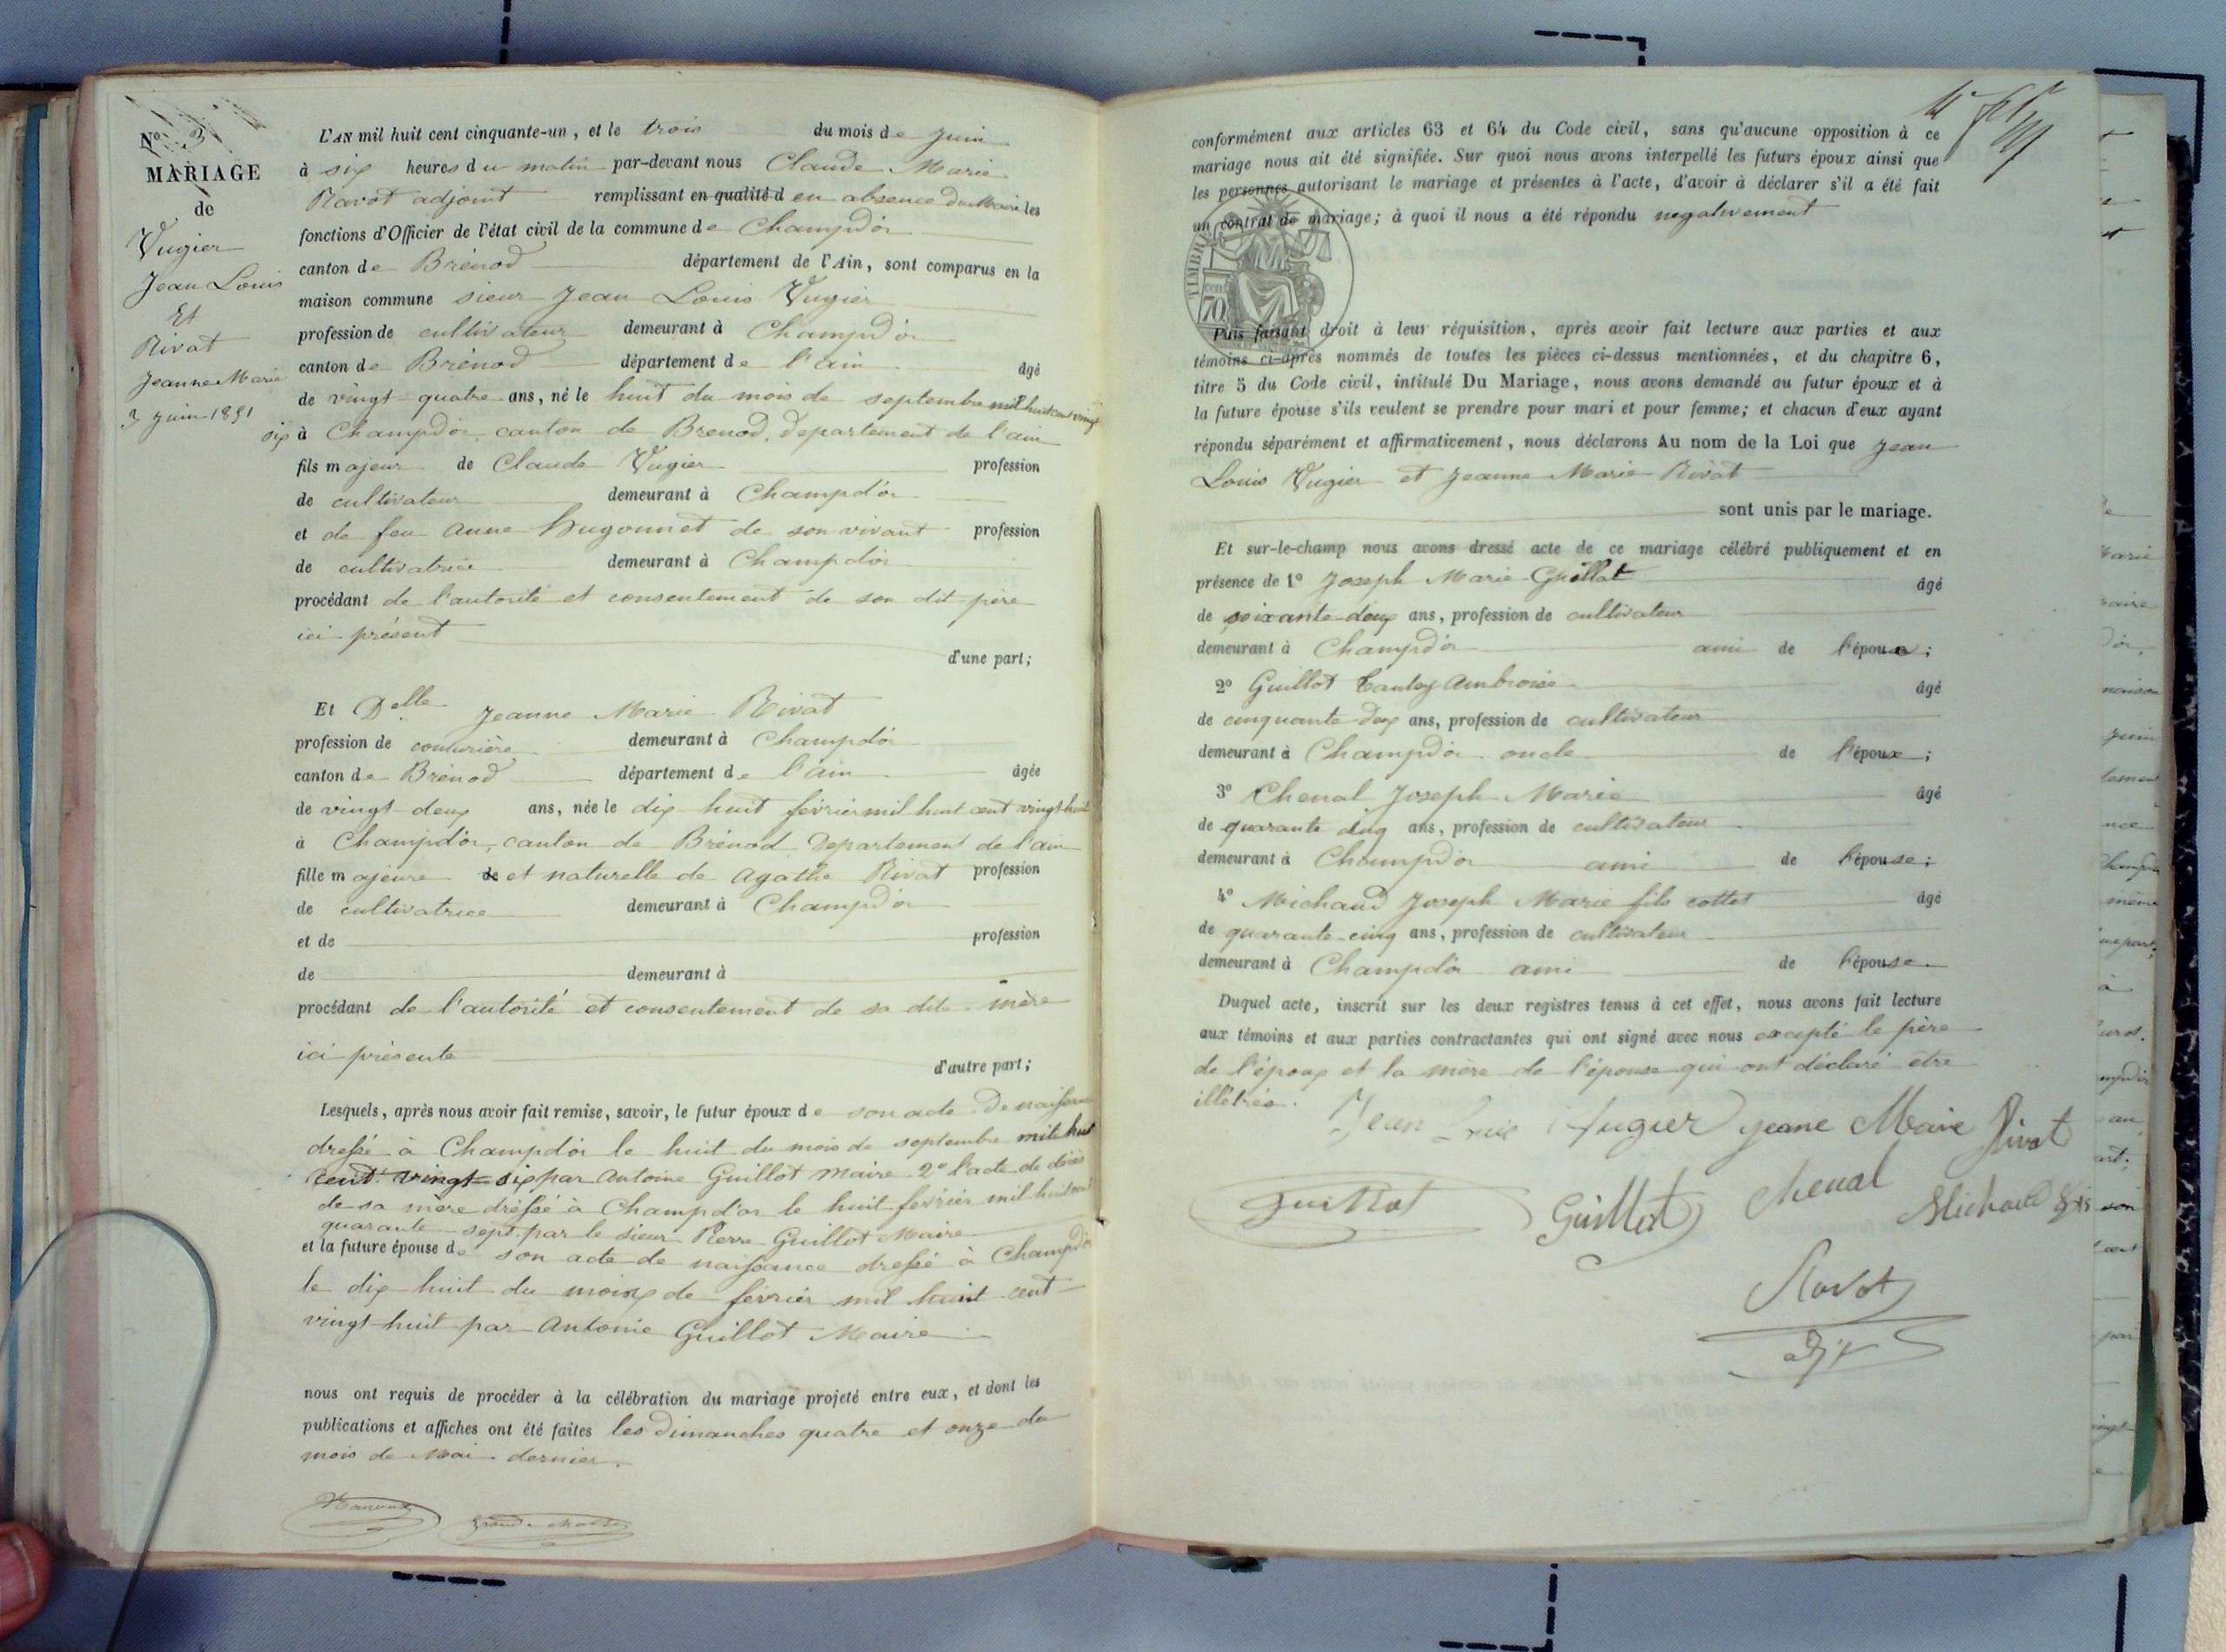 N° 3
MARIAGE
de
Vugier
Jean Louis
Et
Rivat
Jeanne Marie
3 juin 1851
L'AN mil huit cent cinquante-un, et le trois du mois de juin
à six heures du matin par-devant nous Claude Marie
Ravot adjoint remplissant en qualité d en absence du Maire les
fonctions d'Officier de l'état civil de la commune de Champdor
canton de Brénod département de l'Ain, sont comparus en la
maison commune sieur Jean Louis Vugier
profession de cultivateur demeurant à Champdor
canton de Brénod département de l'ain âgé
de vingt quatre ans, né le huit du mois de septembre mil huit cent vingt
six à Champdor, canton de Brenod, departement de l'ain
fils majeur de Claude Vugier profession
de cultivateur demeurant à Champdor
et de feu Anne hugonnet de son vivant profession
de cultivatrice demeurant à Champdor
procédant de l'autorité et consentement de son dit père
ici présent
d'une part;
Et Delle Jeanne Marie Rivat
profession de couturière demeurant à Champdor
canton de Brénod département de l'ain âgée
de vingt deux ans, née le dix huit février mil huit cent vingt huit
à Champdor, canton de Brénod Departement de l'ain
fille majeure de et naturelle de Agathe Rivat profession
de cultivatrice demeurant à Champdor
et de profession
de demeurant à
procédant de l'autorité et consentement de sa dite mère
ici présente
d'autre part;
Lesquels, après nous avoir fait remise, savoir, le futur époux de son acte de naissance
dressé à Champdor le huit du mois de septembre mil huit
cent vingt six par Antoine Guillot Maire 2° l'acte de décès
de sa mère dréssé à Champdor le huit février mil huit cent
quarante sept par le sieur Pierre Guillot Maire
et la future épouse de son acte de naissance dressé à Champdor
le dix huit du mois de février mil huit cent
vingt huit par Antonie Guillot Maire
nous ont requis de procéder à la célébration du mariage projeté entre eux, et dont les
publications et affiches ont été faites les dimanches quatre et onze du
mois de Mai dernier.
conformément aux articles 63 et 64 du Code civil, sans qu'aucune opposition à ce
mariage nous ait été signifiée. Sur quoi nous avons interpellé les futurs époux ainsi que
les personnes autorisant le mariage et présentes à l'acte, d'avoir à déclarer s'il a été fait
un contrat de mariage; à quoi il nous a été répondu negativement
TIMBRE
70
Puis faisant droit à leur réquisition, après avoir fait lecture aux parties et aux
témoins ci-après nommés de toutes les pièces ci-dessus mentionnées, et du chapitre 6,
titre 5 du Code civil, intitulé Du Mariage, nous avons demandé au futur époux et à
la future épouse s'ils veulent se prendre pour mari et pour femme; et chacun d'eux ayant
répondu séparément et affirmativement, nous déclarons Au nom de la Loi que Jean
Louis Vugier et Jeanne Marie Rivat
sont unis par le mariage.
Et sur-le-champ nous avons dressé acte de ce mariage célébré publiquement et en
présence de 1° Joseph Marie Guillot âgé
de soixante-deux ans, profession de cultivateur
demeurant à Champdor ami de l'époux;
2° Guillot Ambroise âgé
de cinquante-deux ans, profession de cultivateur
demeurant à Champdor oncle de l'époux;
3° Chenal Joseph Marie âgé
de quarante cinq ans, profession de cultivateur
demeurant à Champdor ami de l'épouse;
4° Michaud Joseph Marie fils cottet âgé
de quarante-cinq ans, profession de cultivateur
demeurant à Champdor ami de l'épouse
Duquel acte, inscrit sur les deux registres tenus à cet effet, nous avons fait lecture
aux témoins et aux parties contractantes qui ont signé avec nous excepté le père
de l'époux et la mère de l'épouse qui ont déclaré être
illétrés.
Jean Louis Vugier Jeane Marie Rivat
Guillot Guillot Chenal Michaud fils
Ravot
adjt